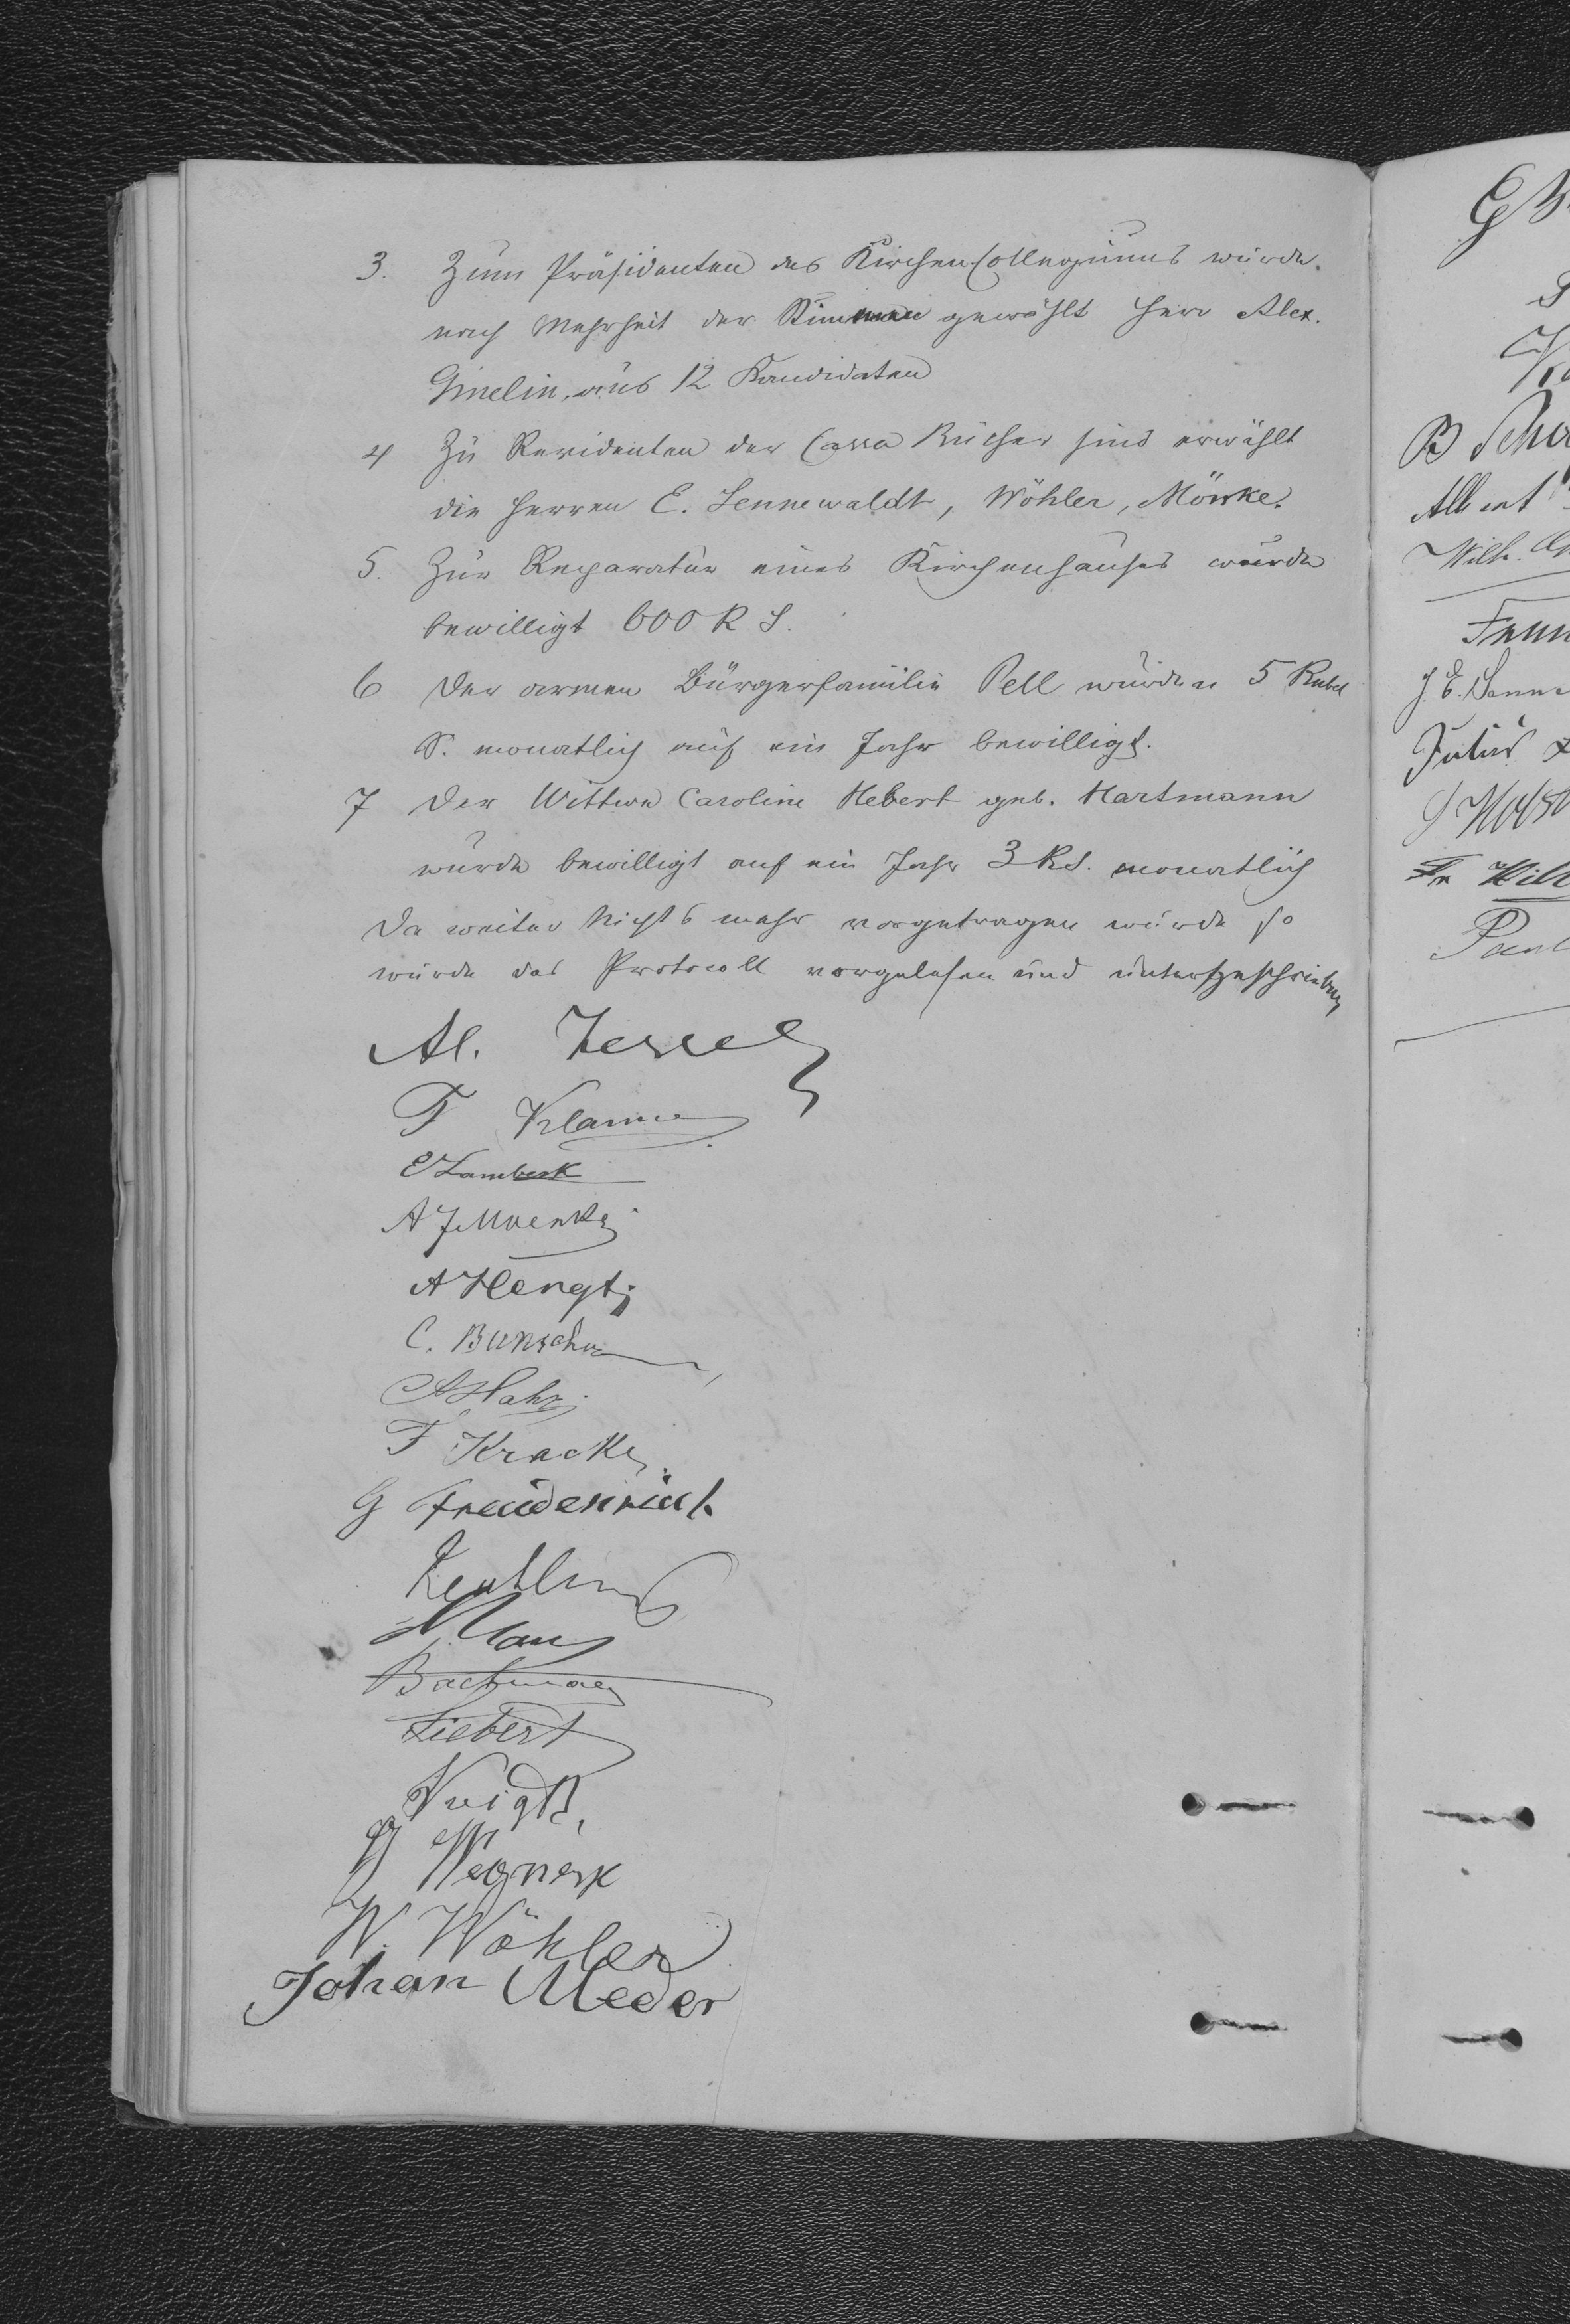 3. Zum Präsidenten des Kirchencollegiums wurde
nach Mehrheit der Stimmen gewählt Herr Alex.
Gmelin, aus 12 Kandidaten
4 Zu Revidenten der Cassa Bücher sind erwählt
die Herren E. Lennewaldt, Wöhler, Mönke.
5. Zur Reparatur eines Kirchenhauses wurde
bewilligt 600 R S.
6 Der armen Bürgerfamilie Pell wurden 5 Rubel
S. monatlich auf ein Jahr bewilligt.
7 Der Wittwe Caroline Hebert geb. Hartmann
wurde bewilligt auf ein Jahr 3 RS. monatlich
Da weiter Nichts mehr vorgetragen wurde so
wurde das Protocoll vorgelesen und unterschrieben
Al.
F Klamm
E Lambeck
A J Moenke
A Hengt
C.
A Hahn
F Kracke
G Freudenreich
Reutling
Bachmann
Siebert
Voigt
Wegner
W. Wöhler
Johan Meder
B
Albert
Wilh.
J. E. Senne
Julius
Fr
Paul